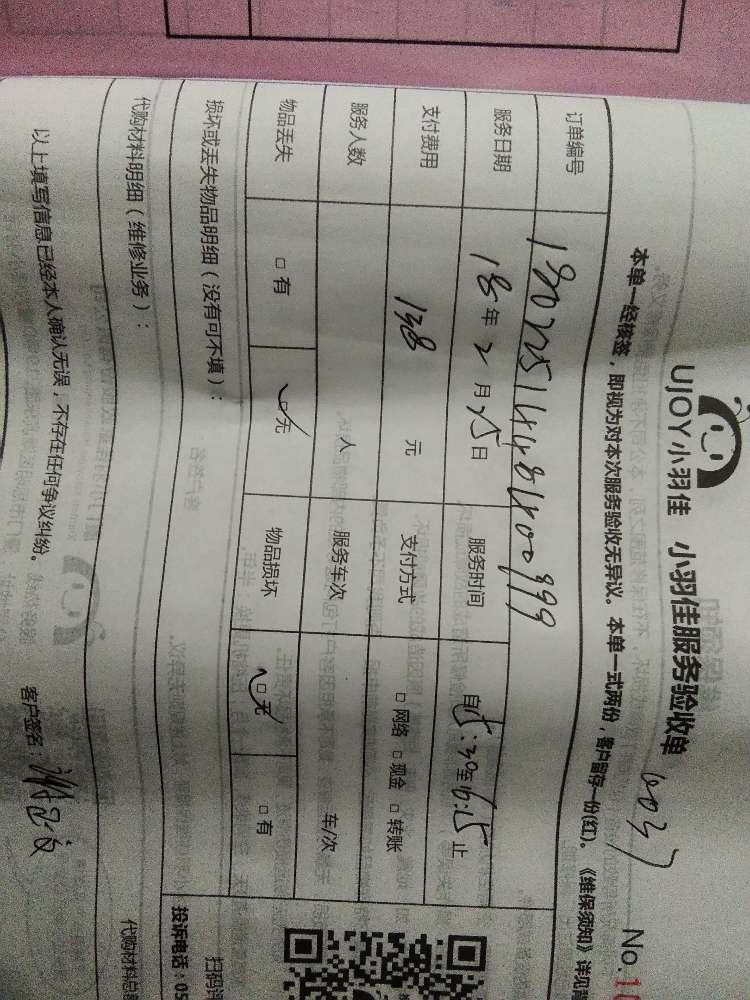 UJOY小羽佳 小羽佳服务验收单
No.10
本单一经核签，即视为对本次服务验收无异议。本单一式两份，客户留存一份(红)。《维保须知》详见背
订单编号
服务日期 18年2月25日 服务时间 自 :30至16:25止
支付费用 138元 支付方式 □网络 □现金 □转账
服务人数 人 服务车次 车/次
物品丢失 □有 □无 物品损坏 □无 □有
损坏或丢失物品明细（没有可不填）：
代购材料明细（维修业务）：
代购材料总
扫码
投诉电话：05
以上填写信息已经本人确认无误，不存在任何争议纠纷。 客户签名：